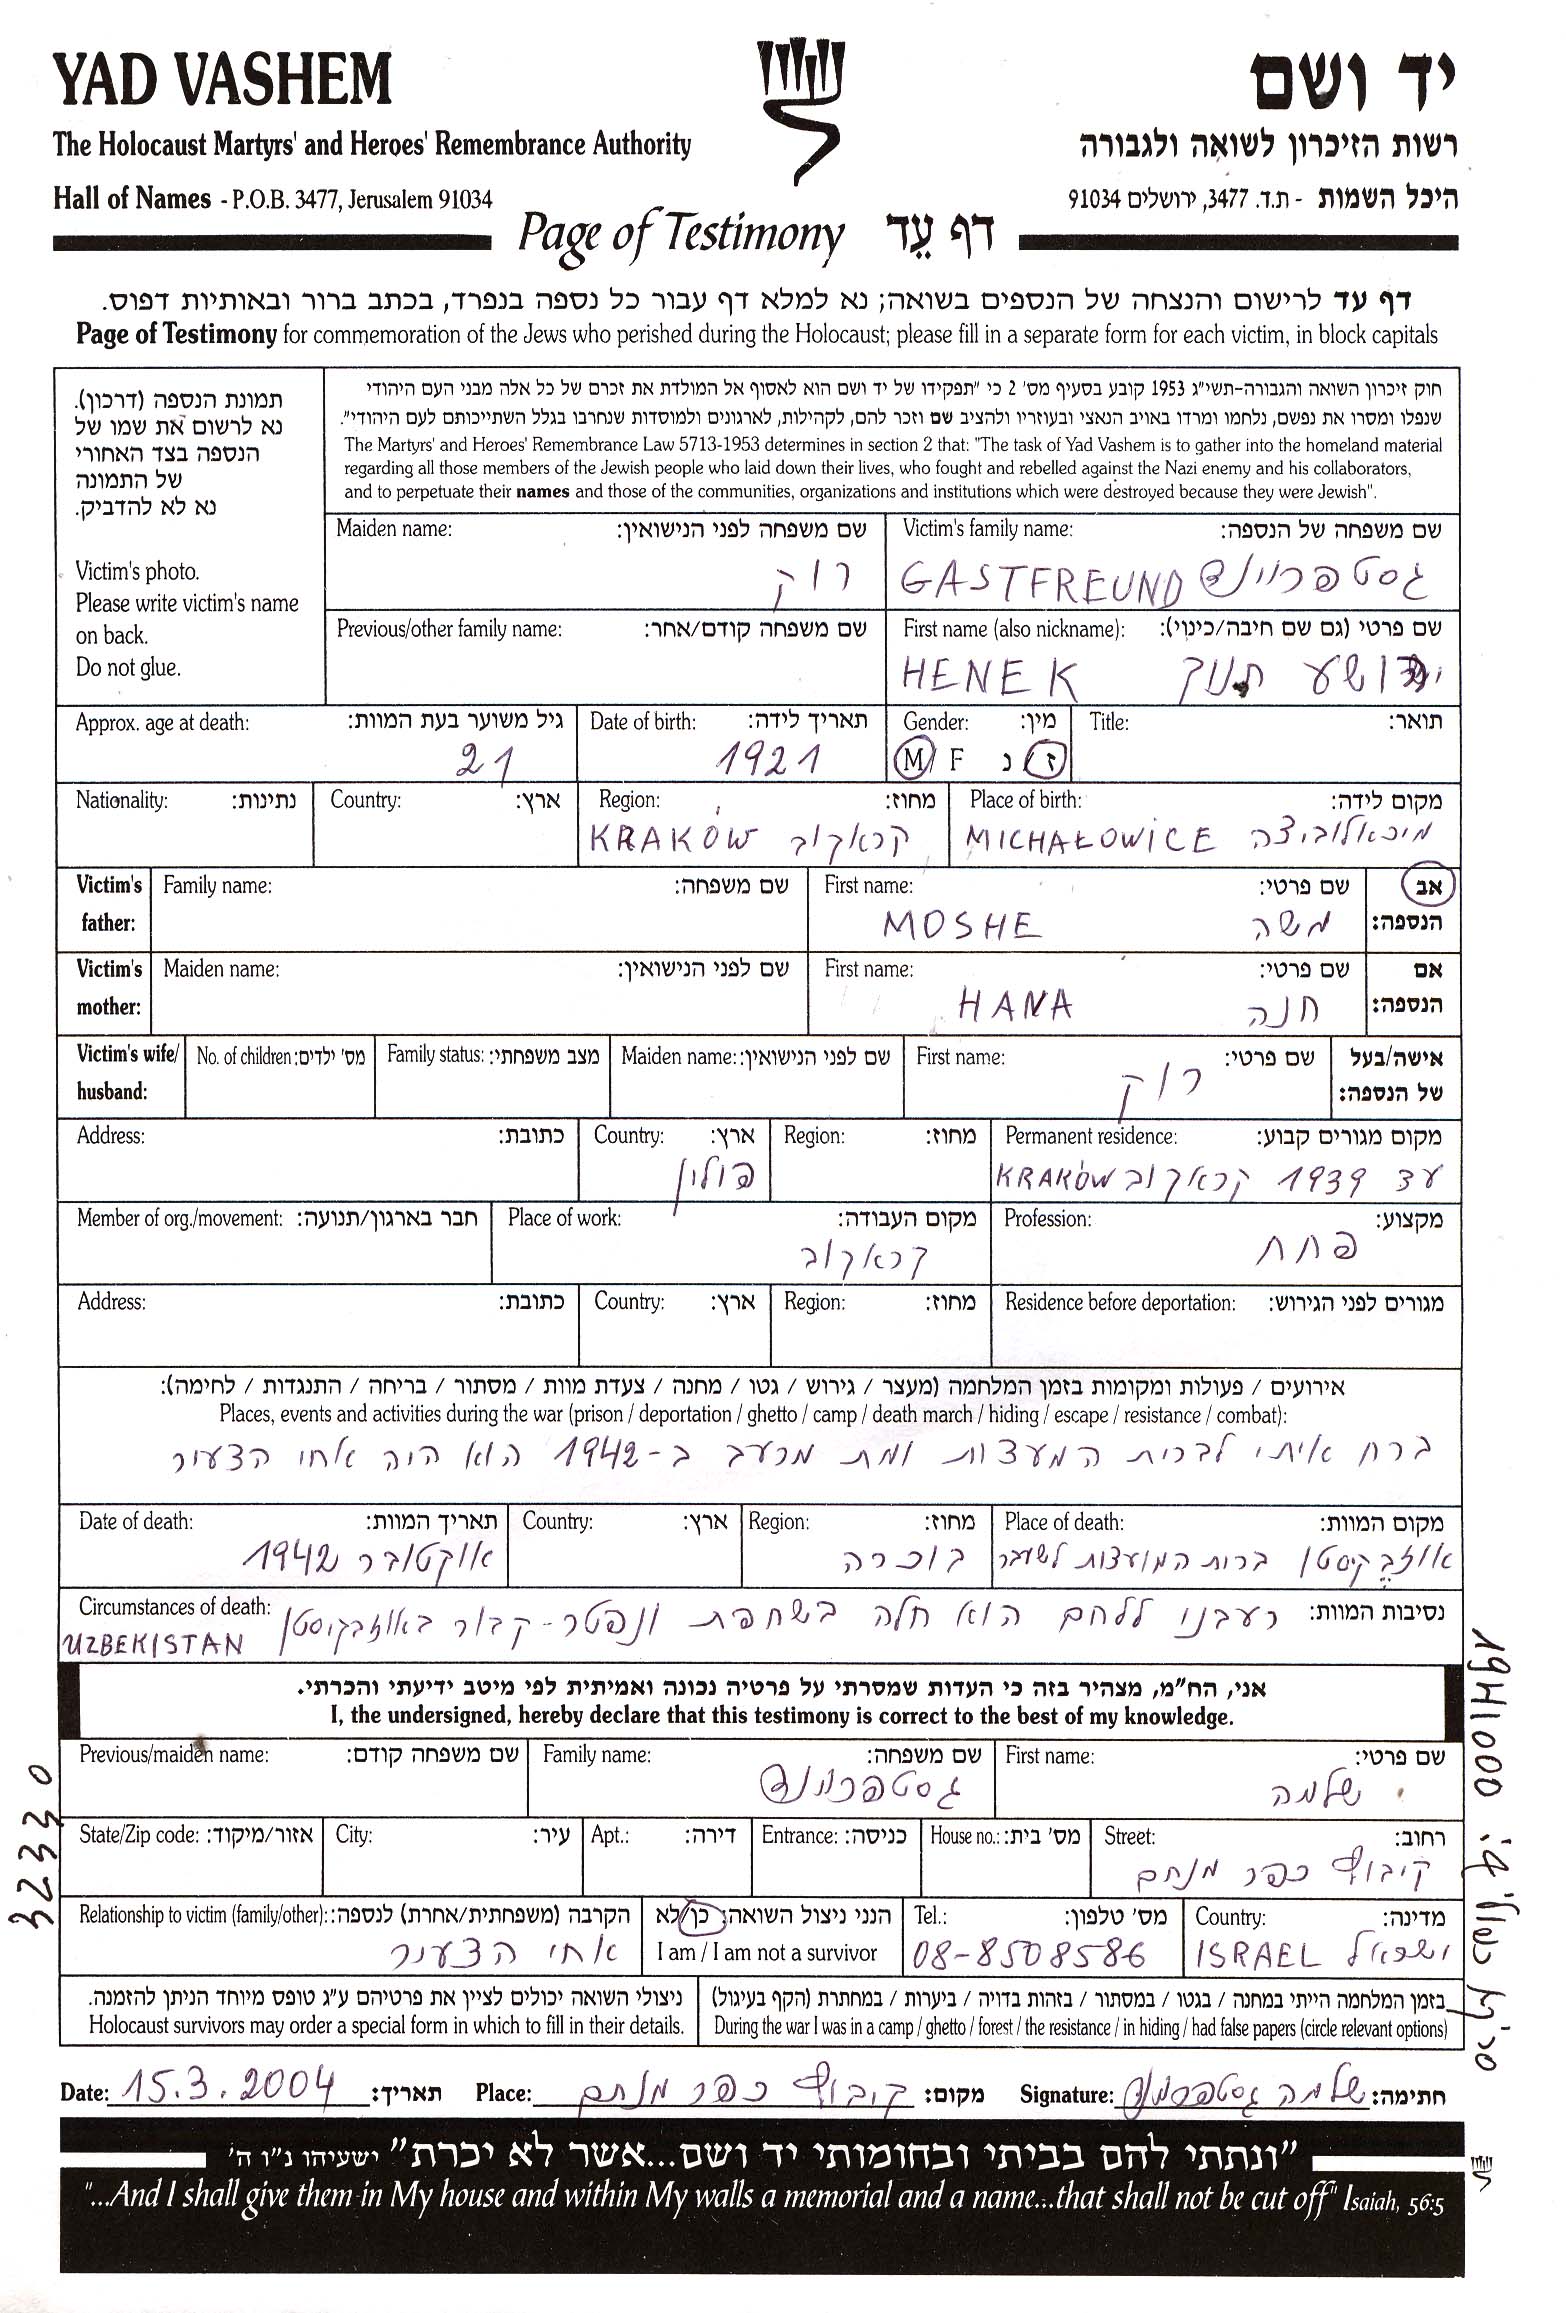 YAD VASHEM
יד ושם
The Holocaust Martyrs' and Heroes' Remembrance Authority
רשות הזיכרון לשואה ולגבורה
Hall of Names - P.O.B. 3477, Jerusalem 91034
היכל השמות - ת.ד. 3477, ירושלים 91034
Page of Testimony דף עֵד
דף עד לרישום והנצחה של הנספים בשואה; נא למלא דף עבור כל נספה בנפרד, בכתב ברור ובאותיות דפוס.
Page of Testimony for commemoration of the Jews who perished during the Holocaust; please fill in a separate form for each victim, in block capitals
תמונת הנספה (דרכון).
נא לרשום את שמו של
הנספה בצד האחורי
של התמונה
נא לא להדביק.
Victim's photo.
Please write victim's name
on back.
Do not glue.
חוק זיכרון השואה והגבורה-תשי"ג 1953 קובע בסעיף מס' 2 כי "תפקידו של יד ושם הוא לאסוף אל המולדת את זכרם של כל אלה מבני העם היהודי
שנפלו ומסרו את נפשם, נלחמו ומרדו באויב הנאצי ובעוזריו ולהציב שם וזכר להם, לקהילות, לארגונים ולמוסדות שנחרבו בגלל השתייכותם לעם היהודי".
The Martyrs' and Heroes' Remembrance Law 5713-1953 determines in section 2 that: "The task of Yad Vashem is to gather into the homeland material
regarding all those members of the Jewish people who laid down their lives, who fought and rebelled against the Nazi enemy and his collaborators,
and to perpetuate their names and those of the communities, organizations and institutions which were destroyed because they were Jewish".
Maiden name: שם משפחה לפני הנישואין:
רוק
Victim's family name: שם משפחה של הנספה:
GASTFREUND גסטפרוינד
Previous/other family name: שם משפחה קודם/אחר:
First name (also nickname): שם פרטי (גם שם חיבה/כינוי):
HENEK חנוך
Approx. age at death: גיל משוער בעת המוות:
21
Date of birth: תאריך לידה:
1921
Gender: מין:
M/F ז/נ
Title: תואר:
Nationality: נתינות:
Country: ארץ:
Region: מחוז:
KRAKÓW קראקוב
Place of birth: מקום לידה:
MICHAŁOWICE מיכאלוביצה
Victim's father:
Family name: שם משפחה:
First name: שם פרטי:
MOSHE משה
אב הנספה:
Victim's mother:
Maiden name: שם לפני הנישואין:
First name: שם פרטי:
HANA חנה
אם הנספה:
Victim's wife/ husband:
No. of children: מס' ילדים:
Family status: מצב משפחתי:
Maiden name: שם לפני הנישואין:
First name: שם פרטי:
רוק
אישה/בעל של הנספה:
Address: כתובת:
Country: ארץ:
פולין
Region: מחוז:
Permanent residence: מקום מגורים קבוע:
עד 1939 קראקוב KRAKÓW
Member of org./movement: חבר בארגון/תנועה:
Place of work: מקום העבודה:
קראקוב
Profession: מקצוע:
פחח
Address: כתובת:
Country: ארץ:
Region: מחוז:
Residence before deportation: מגורים לפני הגירוש:
אירועים / פעולות ומקומות בזמן המלחמה (מעצר / גירוש / גטו / מחנה / צעדת מוות / מסתור / בריחה / התנגדות / לחימה):
Places, events and activities during the war (prison / deportation / ghetto / camp / death march / hiding / escape / resistance / combat):
ברח איתי לברית המעצות ומת מרעב ב-1942 הוא היה אחי הצעיר
Date of death: תאריך המוות:
אוקטובר 1942
Country: ארץ:
Region: מחוז:
בוכרה
Place of death: מקום המוות:
אוזבקיסטן ברות המועצות לשעבר
Circumstances of death: נסיבות המוות:
רעבנו ללחם הוא חלה בשחפת ונפטר-קבור באוזבקיסטן
UZBEKISTAN
אני, הח"מ, מצהיר בזה כי העדות שמסרתי על פרטיה נכונה ואמיתית לפי מיטב ידיעתי והכרתי.
I, the undersigned, hereby declare that this testimony is correct to the best of my knowledge.
Previous/maiden name: שם משפחה קודם:
Family name: שם משפחה:
גסטפרוינד
First name: שם פרטי:
שלמה
State/Zip code: אזור/מיקוד:
City: עיר:
Apt.: דירה:
Entrance: כניסה:
House no.: מס' בית:
Street: רחוב:
קיבוץ כפר מנחם
Relationship to victim (family/other): הקרבה (משפחתית/אחרת) לנספה:
אחי הצעיר
הנני ניצול השואה: כן/לא
I am / I am not a survivor
Tel.: מס' טלפון:
08-8508586
Country: מדינה:
ISRAEL ישראל
ניצולי השואה יכולים לציין את פרטיהם ע"ג טופס מיוחד הניתן להזמנה.
Holocaust survivors may order a special form in which to fill in their details.
בזמן המלחמה הייתי במחנה / בגטו / במסתור / בזהות בדויה / ביערות / במחתרת (הקף בעיגול)
During the war I was in a camp / ghetto / forest / the resistance / in hiding / had false papers (circle relevant options)
Date: 15.3.2004 תאריך:
Place: קיבוץ כפר מנחם מקום:
Signature: שלמה גסטפרוינד חתימה:
"ונתתי להם בביתי ובחומותי יד ושם...אשר לא יכרת" ישעיהו נ"ו ה'
"...And I shall give them in My house and within My walls a memorial and a name...that shall not be cut off" Isaiah, 56:5
32330